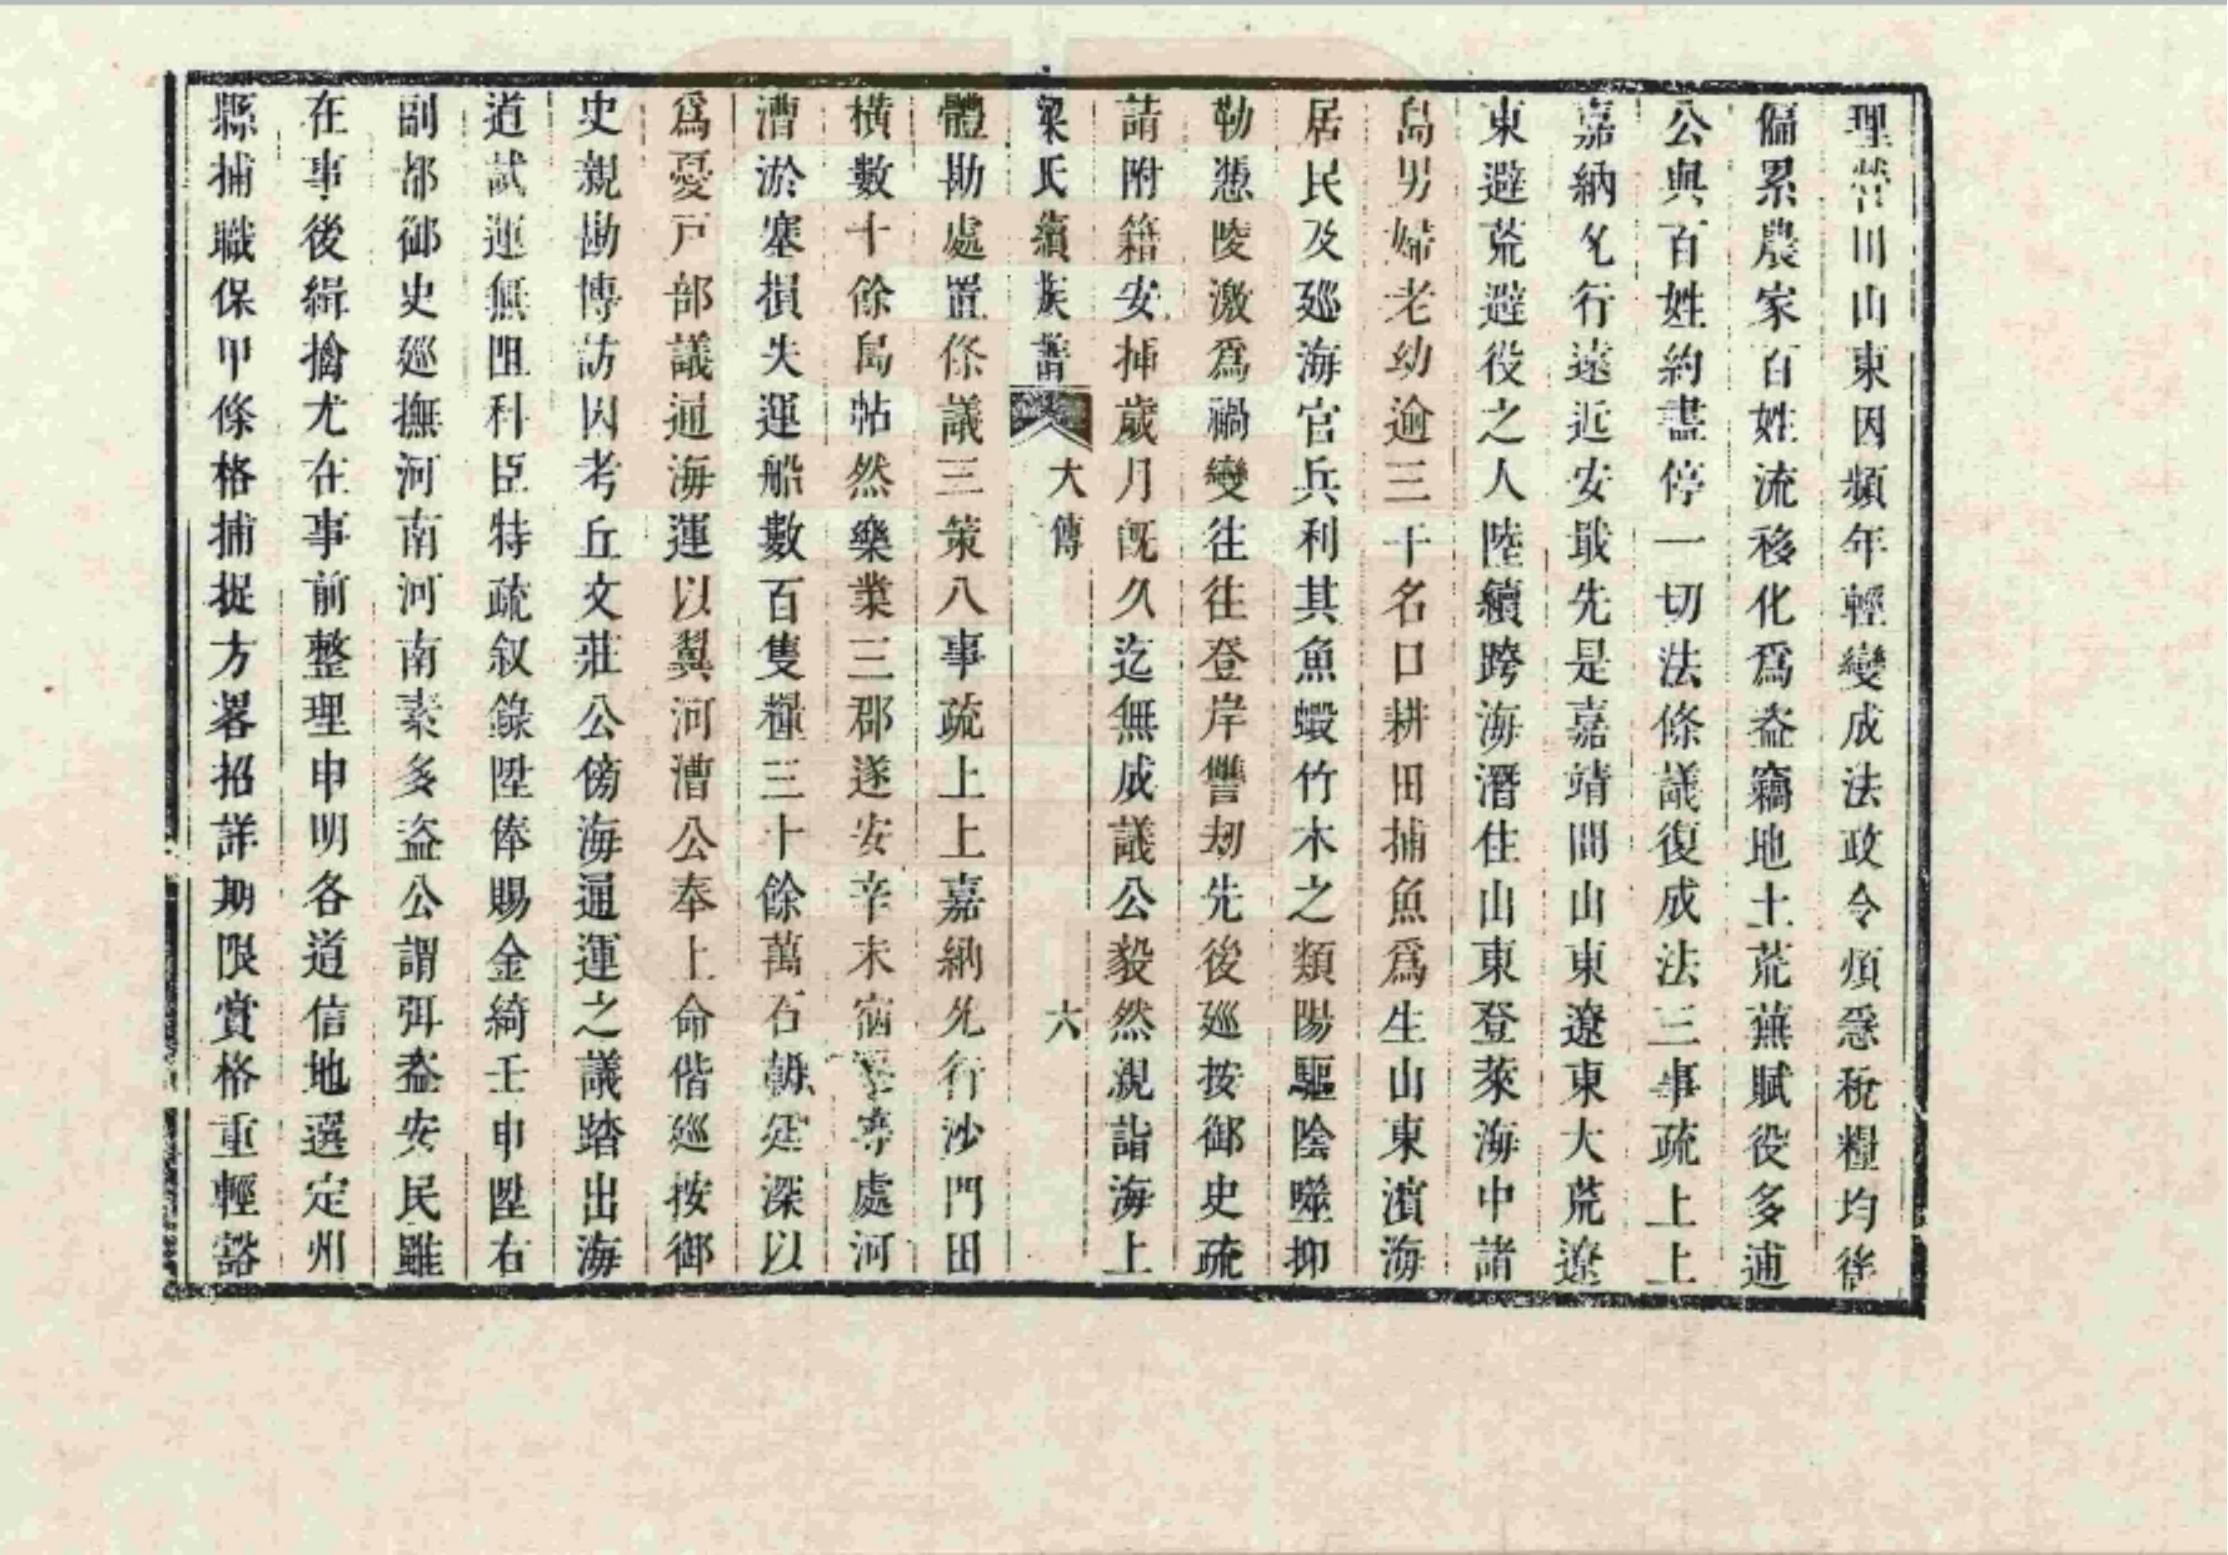 理營田山東因頻年輕變成法政令煩急稅糧均徭
偏累農家百姓流移化爲盜竊地土荒蕪賦役多逋
公與百姓約盡停一切法條議復成法三事疏上上
嘉納允行遠近安戢先是嘉靖間山東遼東大荒遼
東避荒避役之人陸續跨海潛住山東登萊海中諸
島男婦老幼逾三千名口耕田捕魚爲生山東濱海
居民及廵海官兵利其魚蝦竹木之類陽驅陰噬抑
勒憑陵激爲禍變往往登岸讐刼先後廵按御史疏
請附籍安揷歲月旣久迄無成議公毅然親詣海上
梁氏續族譜 大傳 六
體勘處置條議三策八事疏上上嘉納允行沙門田
橫數十餘島帖然樂業三郡遂安辛未宿遷等處河
漕淤塞損失運船數百隻糧三十餘萬石朝廷深以
爲憂戸部議通海運以翼河漕公奉上命偕廵按御
史親勘博訪因考丘文莊公傍海通運之議踏出海
道試運無阻科臣特疏叙錄陞俸賜金綺壬申陞右
副都御史廵撫河南河南素多盗公謂弭盗安民雖
在事後緝擒尤在事前整理申明各道信地選定州
縣捕職保甲條格捕捉方畧招詳期限賞格重輕豁